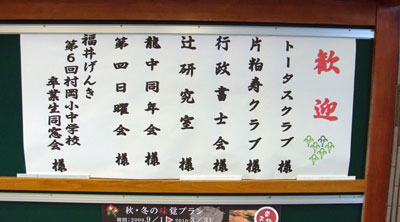 歓迎
トータスクラブ 様
片粕寿クラブ 様
行政書士会 様
辻研究室 様
龍中同年会 様
第四日曜会 様
福井げんき
第6回村岡小中学校
卒業生同窓会 様
秋・冬の味覚プラン
期間:2009.9/1▶2010.3/31